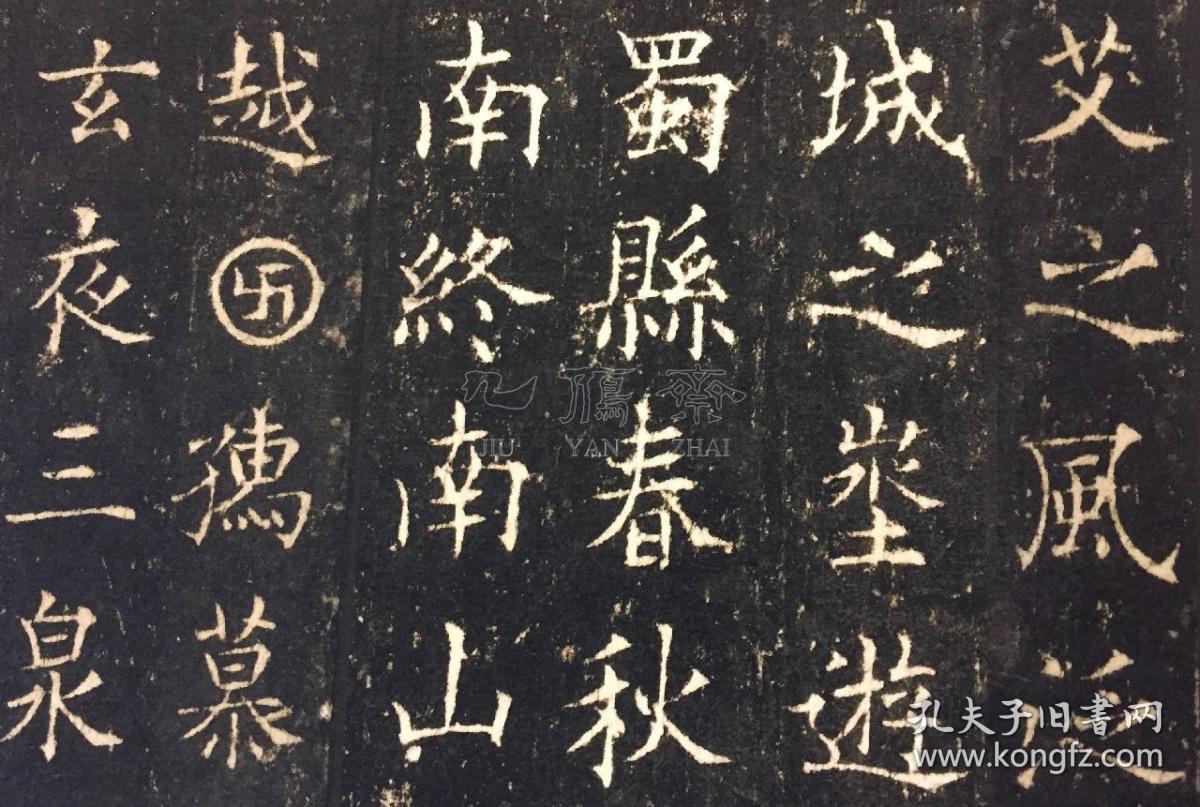 艾之風
城之埊遊
蜀縣春秋
南終南山
越卍慕
玄夜三泉
九鴈齋
JIU YAN ZHAI
孔夫子旧書网
www.kongfz.com